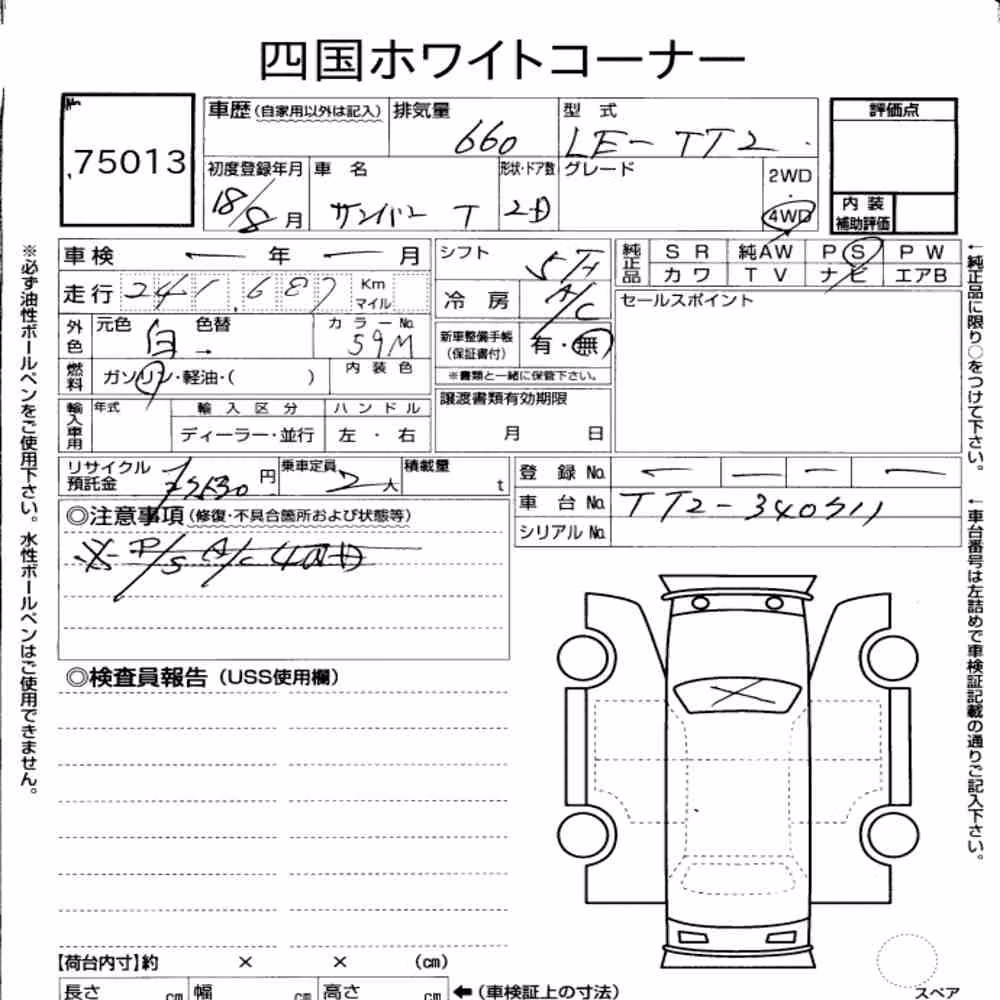 四国ホワイトコーナー
75013
車歴(自家用以外は記入) 排気量 660 型 式 LE-TT2
評価点
初度登録年月 18/8月 車 名 サンバー T 形状・ドア数 2D グレード 2WD・4WD
内装補助評価
車検 ー 年 ー 月
走行 241,687 Km マイル
外色 元色 白 色替 → カラーNo. 59M
燃料 ガソリン・軽油・( ) 内装色
輸入車用 年式 輸入区分 ハンドル
ディーラー・並行 左・右
シフト 5F
冷房 A/C
新車整備手帳(保証書付) 有・無
※書類と一緒に保管下さい。
譲渡書類有効期限
月 日
純正品 SR 純AW PS PW
カワ TV ナビ エアB
セールスポイント
リサイクル預託金 円 乗車定員 2人 積載量 t
登録No. ー ー ー ー
車台No. TT2-340511
シリアルNo.
◎注意事項(修復・不具合箇所および状態等)
※ P/S A/C 4WD
◎検査員報告(USS使用欄)
【荷台内寸】約 × × (cm)
長さ cm 幅 cm 高さ cm ←(車検証上の寸法)
スペア
※必ず油性ボールペンをご使用下さい。水性ボールペンはご使用できません。
←純正品に限り○をつけて下さい。
←車台番号は左詰めで車検証記載の通りご記入下さい。